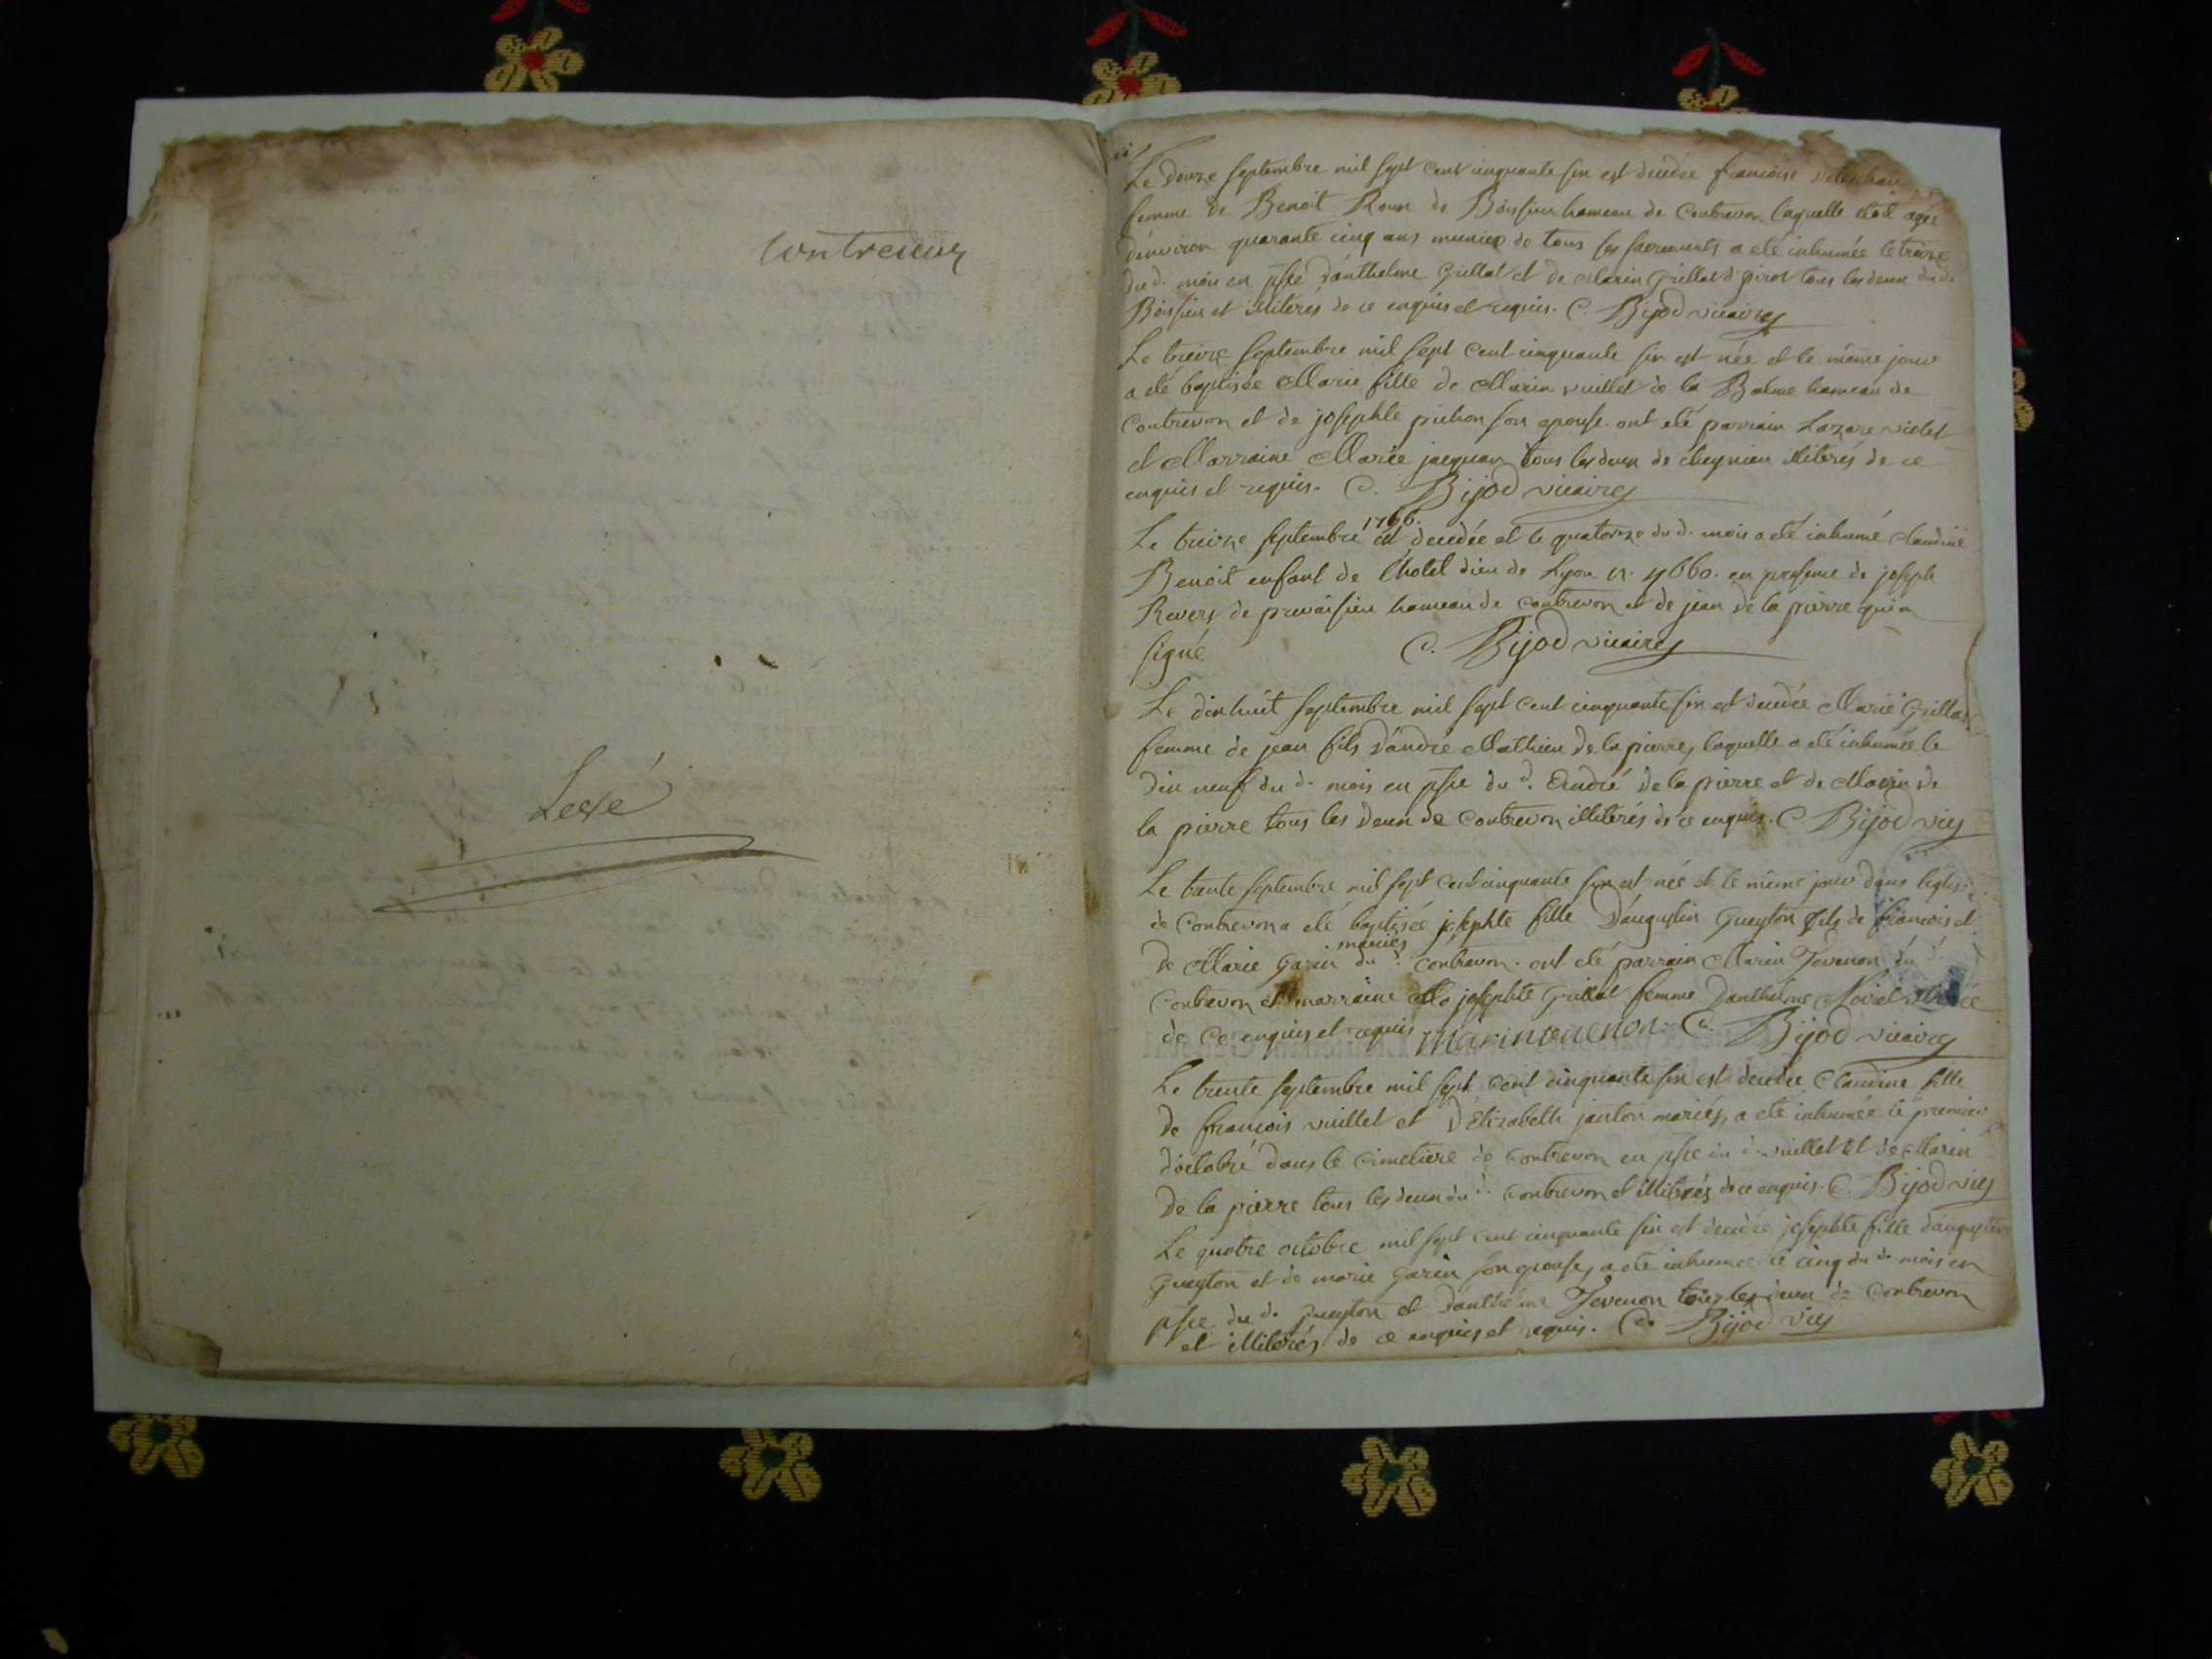 Contrevoz
Lexé
Le douze septembre mil sept cent cinquante six est decedée francoise
femme de Benoit Roux de Boissieu hameau de Contrevon laquelle etoit agée
d'environ quarante cinq ans munies de tous ses sacrements a eté inhumée le treize
du d. mois en pnce d'anthelme Grillat et de Marin Grillat d. pirot tous les deux du d.
Boissieu et illiterés de ce enquis et requis. C. Bijod vicaire
Le treize septembre mil sept cent cinquante six est née et le même jour
a eté baptisée Marie fille de Marin vuillet de la Balme hameau de
Contrevon et de josephte prichon son epouse. ont eté parrain Lazare violet
et Marraine Marie jacquan tous les deux de cheynieu illiterés de ce
enquis et requis. C. Bijod vicaire
1756.
Le treize septembre est decedée et le quatorze du d. mois a eté inhumé claudine
Benoit enfant de l'hotel dieu de Lyon n. 4660. en presence de joseph
Revers de prevaisieu hameau de contrevon et de jean de la pierre qui a
signé C. Bijod vicaire
Le dixhuit septembre mil sept cent cinquante six est decedée Marie Grillat
femme de jean fils d'andré Mathieu de la pierre, laquelle a eté inhumée le
dix neuf du d. mois en pnce du d. André de la pierre et de Marin de
la pierre tous les deux de Contrevon illiterés de ce enquis. C. Bijod vic
Le trente septembre mil sept cent cinquante six est née et le même jour dans l'eglise
de Contrevon a eté baptisée josephte fille d'augustin Gueyton fils de francois et
mariés
de Marie Garin du d. contrevon. ont eté parrain Marin Tevenon du d.
Contrevon et marraine josephte Grillat femme d'anthelme Noivel
de ce enquis et requis marin tenenon. C. Bijod vicaire
Le trente septembre mil sept cent cinquante six est decedée Claudine fille
de francois vuillet et d'Elizabeth janton mariés, a eté inhumée le premier
d'octobre dans le cimetiere de Contrevon en pnce du d. vuillet et de Marin
De la pierre tous les deux du d. contrevon et illiterés de ce enquis. C. Bijod vic
Le quatre octobre mil sept cent cinquante six est decedée josephte fille d'augustin
Gueyton et de marie Garin son epouse, a eté inhumée le cinq du d. mois en
pnce du d. Gueyton et d'anthelme Tevenon tous les deux de Contrevon
et illiterés de ce enquis et requis. C. Bijod vic